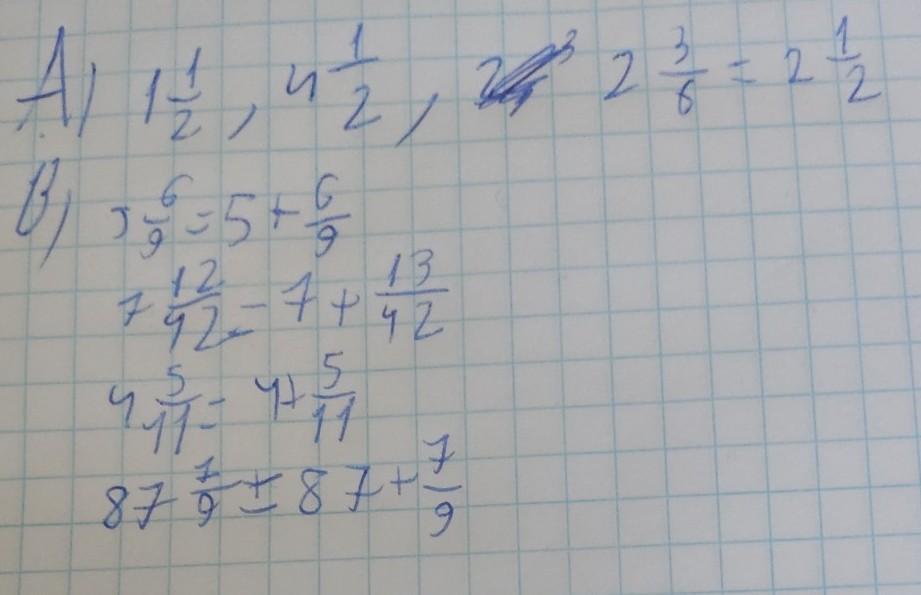 A) 1 1/2, 4 1/2, 2 3/6 = 2 1/2
B) 5 6/9 = 5 + 6/9
7 12/42 = 7 + 13/42
4 5/11 = 4 + 5/11
87 7/9 = 87 + 7/9